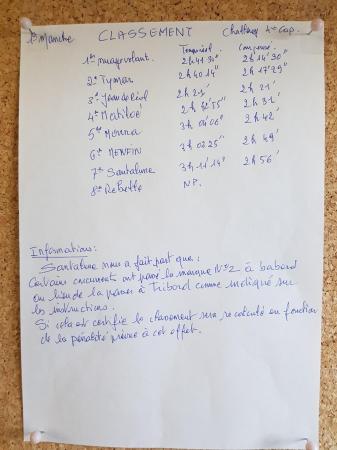 1e Manche CLASSEMENT Challenge 4e Cap.
Temps réel Compensé
1er nuagevolant. 2h41'30" 2h14'30"
2e Tymar 2h40'14" 2h17'29"
3e Jean de Réol 2h21' 2h21'
4e Matiloé 2h52'55" 2h31'
5e Menna 3h04'06" 2h42'
6e MENFIN 3h02'25" 2h49'
7e Santalune 3h11'14" 2h56'
8e Rebette NP.
Informations:
Santalune nous a fait part que:
Certains concurrents ont passé la marque N°2 à babord
au lieu de la passer à Tribord comme indiqué sur
les instructions.
Si cela est certifié le classement sera recalculé en fonction
de la pénalité prévue à cet effet.